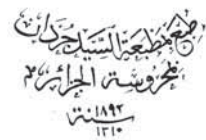 طبع بمطبعة السيد جردان
بمحروسة الجزائر
سنة ١٨٩٢
١٣١٠